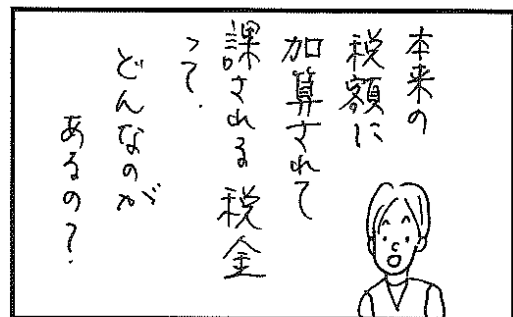 本来の
税額に
加算されて
課される税金
って、
どんなのが
あるの？